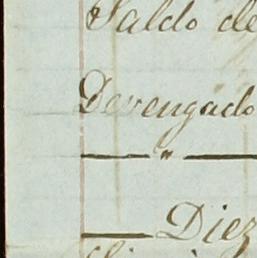 Saldo de
Devengado
— " —
— Diez